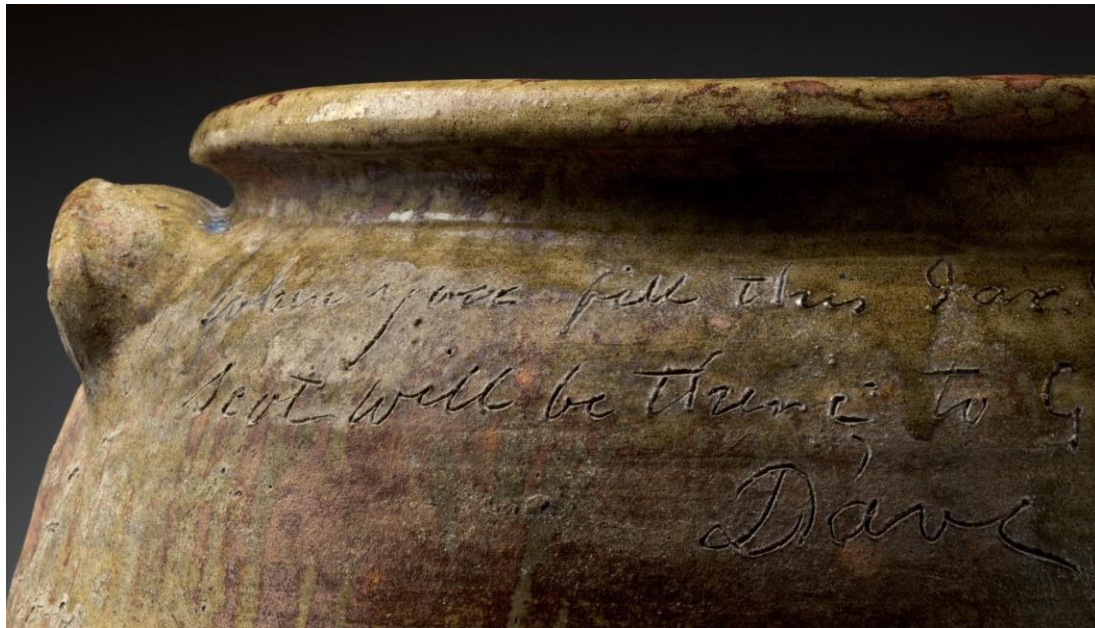 when you fill this Jar
Scot will be there; to G
Dave